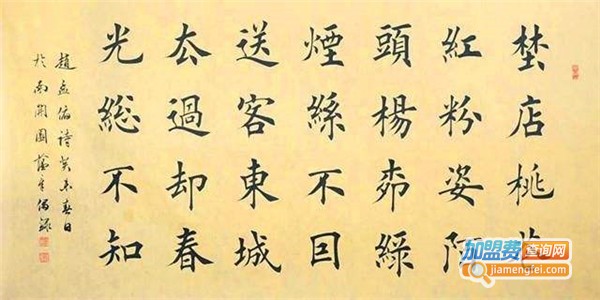 埜店桃花
紅粉姿陌
頭楊柳綠
煙絲不因
送客東城
去過却春
光總不知
趙孟俯詩癸未春日
於南開園偶錄
加盟费查询网
jiamengfei.com